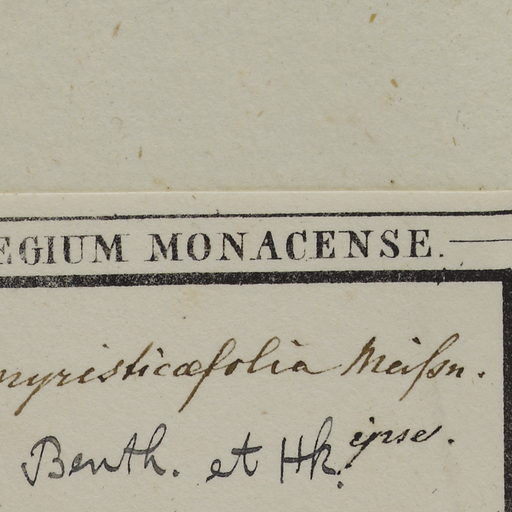 EGIUM MONACENSE.
myristicæfolia Meißn.
ipse.
Benth. et Hk.